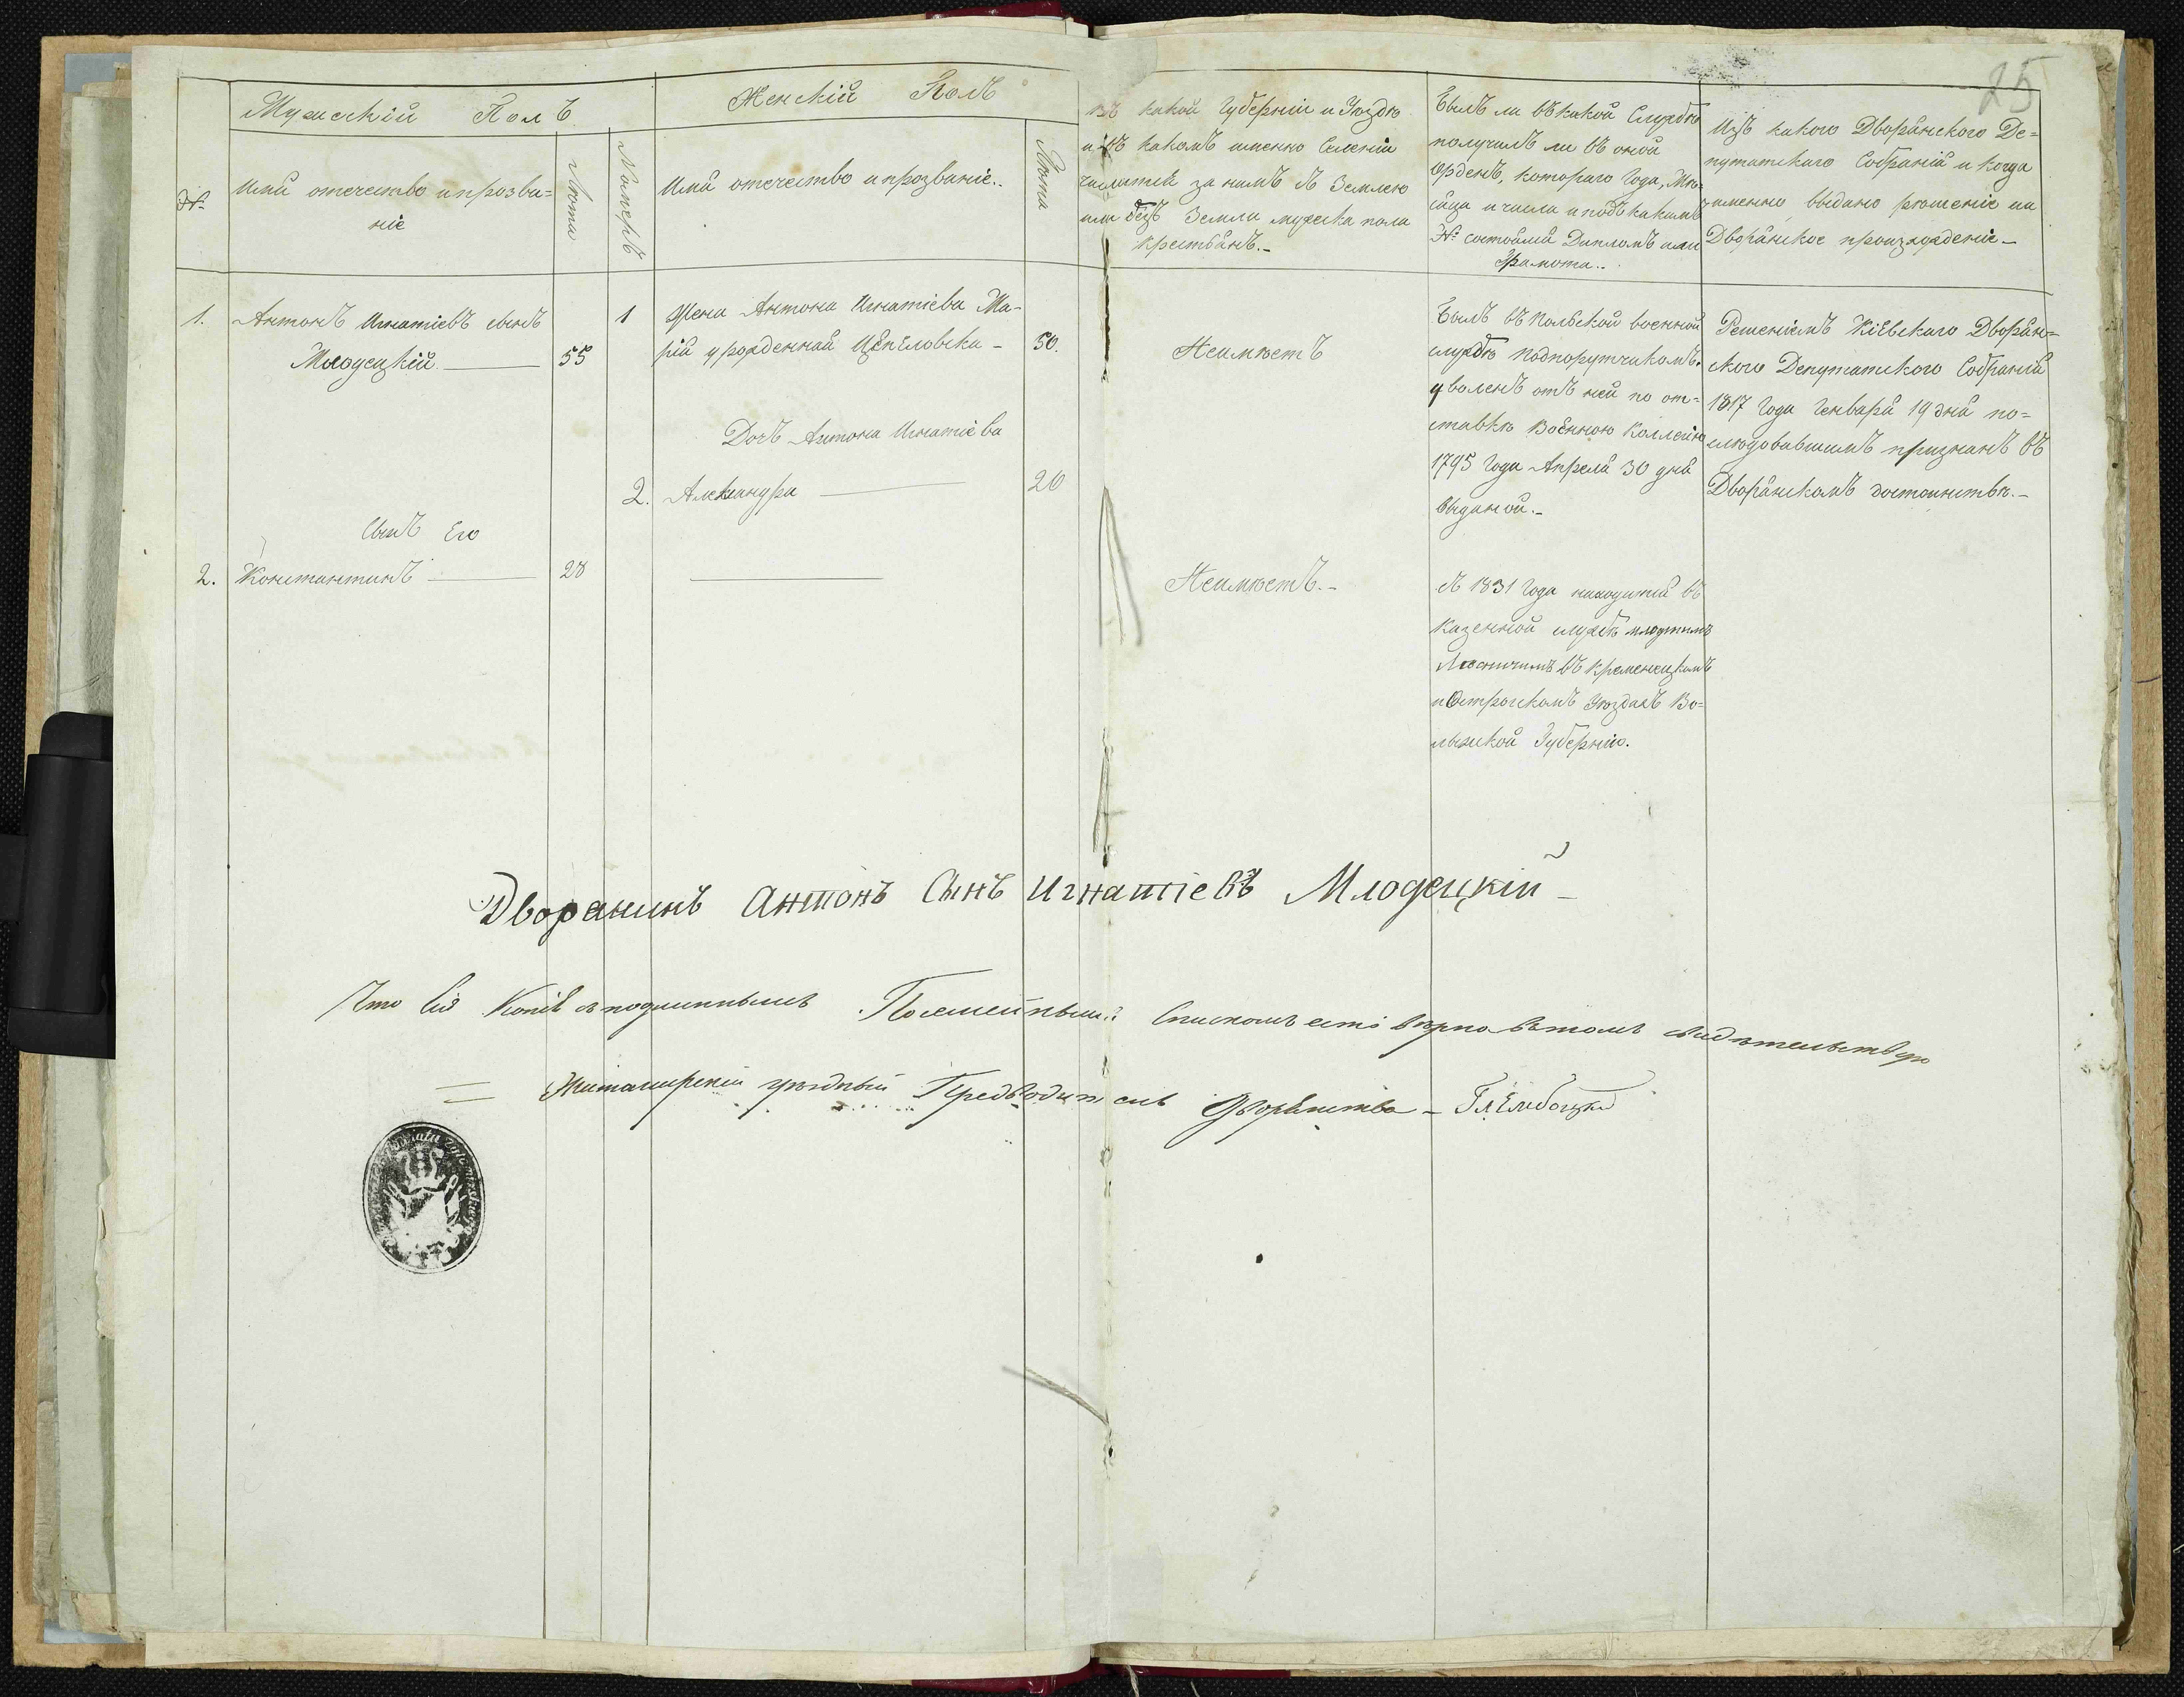 25
Мужескій Полъ
Женскій Полъ
№
Имя отечество и прозва=
ніе
Лѣта
Номеръ
Имя отечество и прозваніе..
Лѣта
Въ какой Губерніи и Уѣздѣ
и въ какомъ именно Селеніи
числится за нимъ съ Землею
или безъ Земли мужеска пола
крестьянъ.-
Былъ ли въ какой Службѣ
получилъ ли въ оной
Орденъ, котораго Года, Мѣ-
сяца и числа и подъ какимъ
№ состоялся Дипломъ или
Грамота..
Изъ какого Дворянского Де=
путатскаго Собранія и когда
именно выдано рѣшеніе на
Дворянское произхожденіе-
1. Антонъ Игнатіевъ сынъ
Млодецкій 55
1 Жена Антона Игнатіева Ма-
рія урожденная - 50.
Неимѣетъ
Былъ въ Польской военной
службѣ Подпорутчикомъ.
уволенъ отъ ней по от=
ставкѣ Военною Коллегіею
1795 Года Апреля 30 дня
выданой.-
Решеніемъ Кіевскаго Дворян=
ского Депутатского Собранія
1817 Года Генваря 19 дня по=
слѣдовавшимъ признанъ въ
Дворянскомъ достоинствѣ.-
Дочь Антона Игнатіева
2. Александра 20
Сынъ Его
2. Константинъ 28
Неимѣетъ.-
съ 1831 Года находится въ
Казенной службѣ младшимъ
Лѣсничимъ въ Кременецкомъ
и Острогскомъ Уѣздахъ Во=
лынской Губерніи.
Дворанинъ Антонъ Сынъ Игнатіевъ Млодецкій -
Что Сія Копія съ подлиннымъ Посемейнымъ Спискомъ есть вѣрна въ томъ свидѣтельствую
Житомирскій уѣздный Предводитель Дворянства -